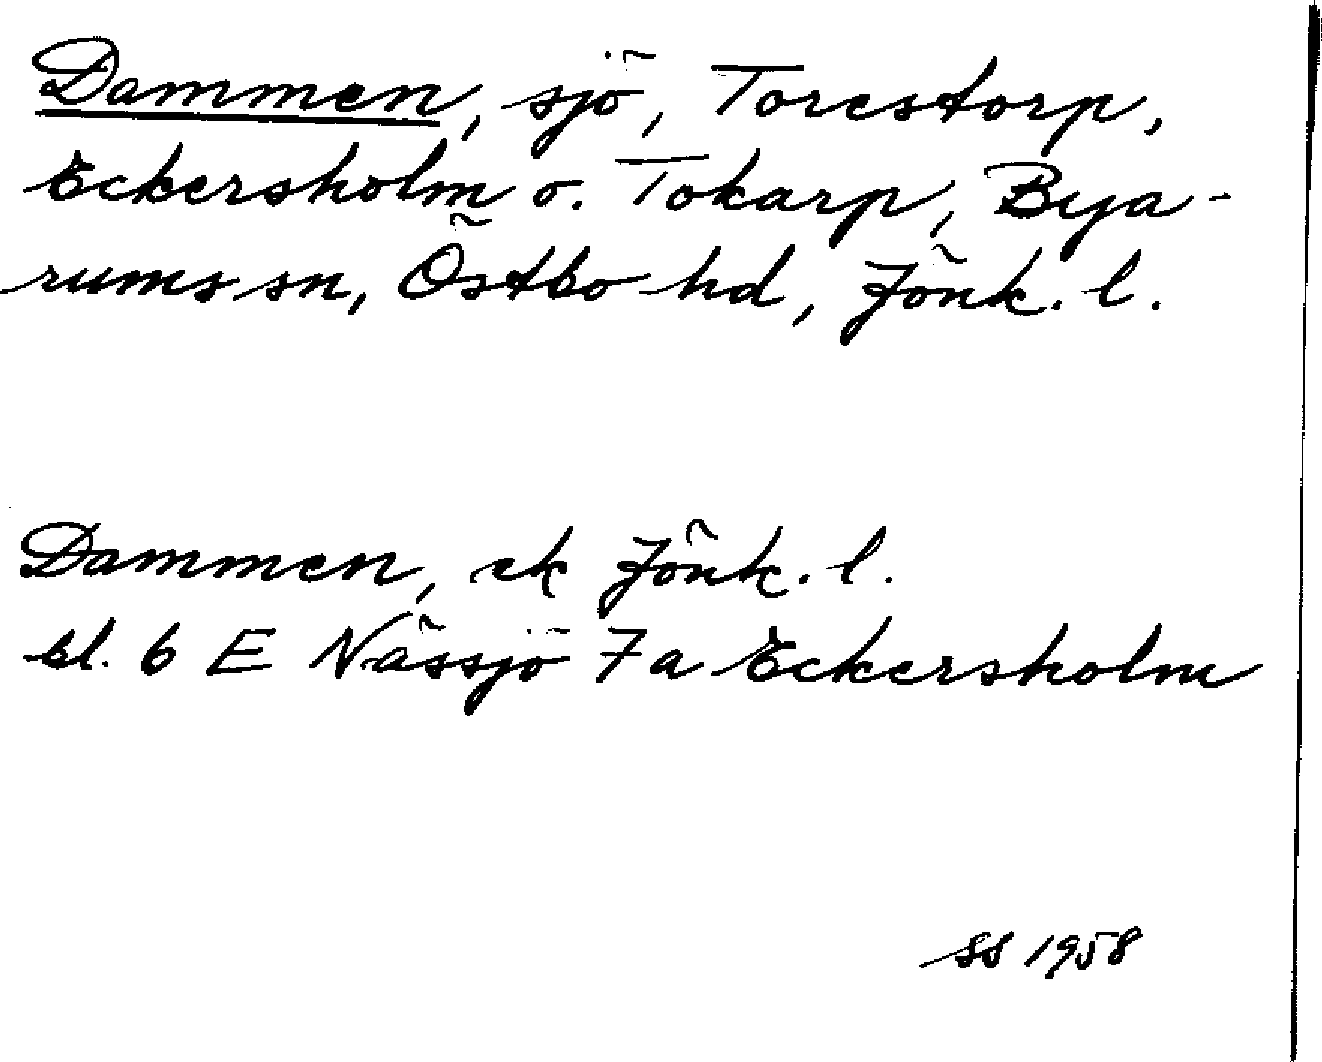 Dammen, sjö, Torestorp,
Eckersholm o. Tokarp, Bya-
rums sn, Östbo hd, Jönk. l.
Dammen, ek Jönk. l.
bl. 6 E Nässjö 7a Eckersholm
SS 1958